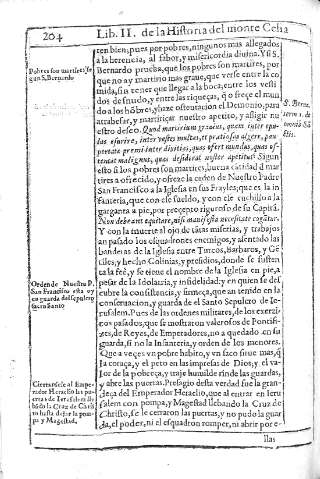 204
Lib. II. de la Historia del monte Celia
ten bien, pues por pobres, ningunos mas allegados
a la herencia, al fabor, y misericordia divina. Y si S.
Bernardo prueba, que los pobres son martires, por
que no ay martirio mas graue, que verse entre la co
mida, sin tener que llegar a la boca, entre los vesti
dos desnudo, y entre las riqueças, q̃ ofreçe el mun
do a los hõbres, y haze ostentacion el Demonio, para
arrabatar, y martiriçar nuestro apetito, y afligir nu
estro deseo. Quod martirium grauius, quam inter epu
las esurire, inter vestes multas, et pratiosas algere, pau
pertate premi inter divitias, quas ofert mundus, quas os
tentat malignus, quas desiderat noster apetitus? Sigun
esto si los pobres son martires, buena cãtidad đ mar
tires a ofrecido, y ofreçe la orden de Nuestro Padre
San Francisco a la Iglesia en sus Frayles, que es la in
fanteria, que con ese sueldo, y con ele cuchillo a la
garganta a pie, por precepto riguroso de su Capitã.
Non debeant equitare, nisi manifesta necesitate cogãtur.
Y con la muerte al ojo de tãtas miserias, y trabajos
an pasado los esquadrones enemigos, y asentando las
banderas de la Iglesia entre Turcos, Barbaros, y Gẽ
tiles, y hecho Colinias, y presidios, donde se susten
ta la feè, y se tiene el nombre de la Iglesia en pie, a
pesar de la Idolatria, y infidelidad; y en quien se des
cubre la constãncia, y firmeça, que an tenido en la
conseruacion, y guarda de el Santo Sepulcro de Ie-
rusalem. Pues de las ordenes militares, de los exerci
tos pasados, que se mostraron valerosos de Pontifi-
çes, de Reyes, de Emperadores, no a quedado en su
guarda, si no la Infanteria, y orden de los menores.
Que a veçes vn pobre habito, y vn saco sirue mas, q̃
la coraça, y el peto en las impresas de Dios; y el va-
lor de la pobreça, y traje humilde rinde las guardas,
y abre las puertas. Presagio desta verdad fue la gran-
deça del Emperador Heraclio, que al entrar en Ieru
salem con pompa, y Magestad llebando la Cruz de
Christo, se le cerraron las puertas, y no pudo la guar
da, el poder, ni el esquadron romper, ni abrir por e-
llas
Pobres son martires, se
gun S. Bernardo
S. Berna.
serm 1. de
Orden de Nuestro P.
San Francisco esta oy
en guarda del sepulcro
Santo
Cierranse le al Empe-
rador Heraclio las pu
ertas de Ierusalem lle
bãdo la Cruz de Chris
to hasta dejar la pom-
pa y Magestad.